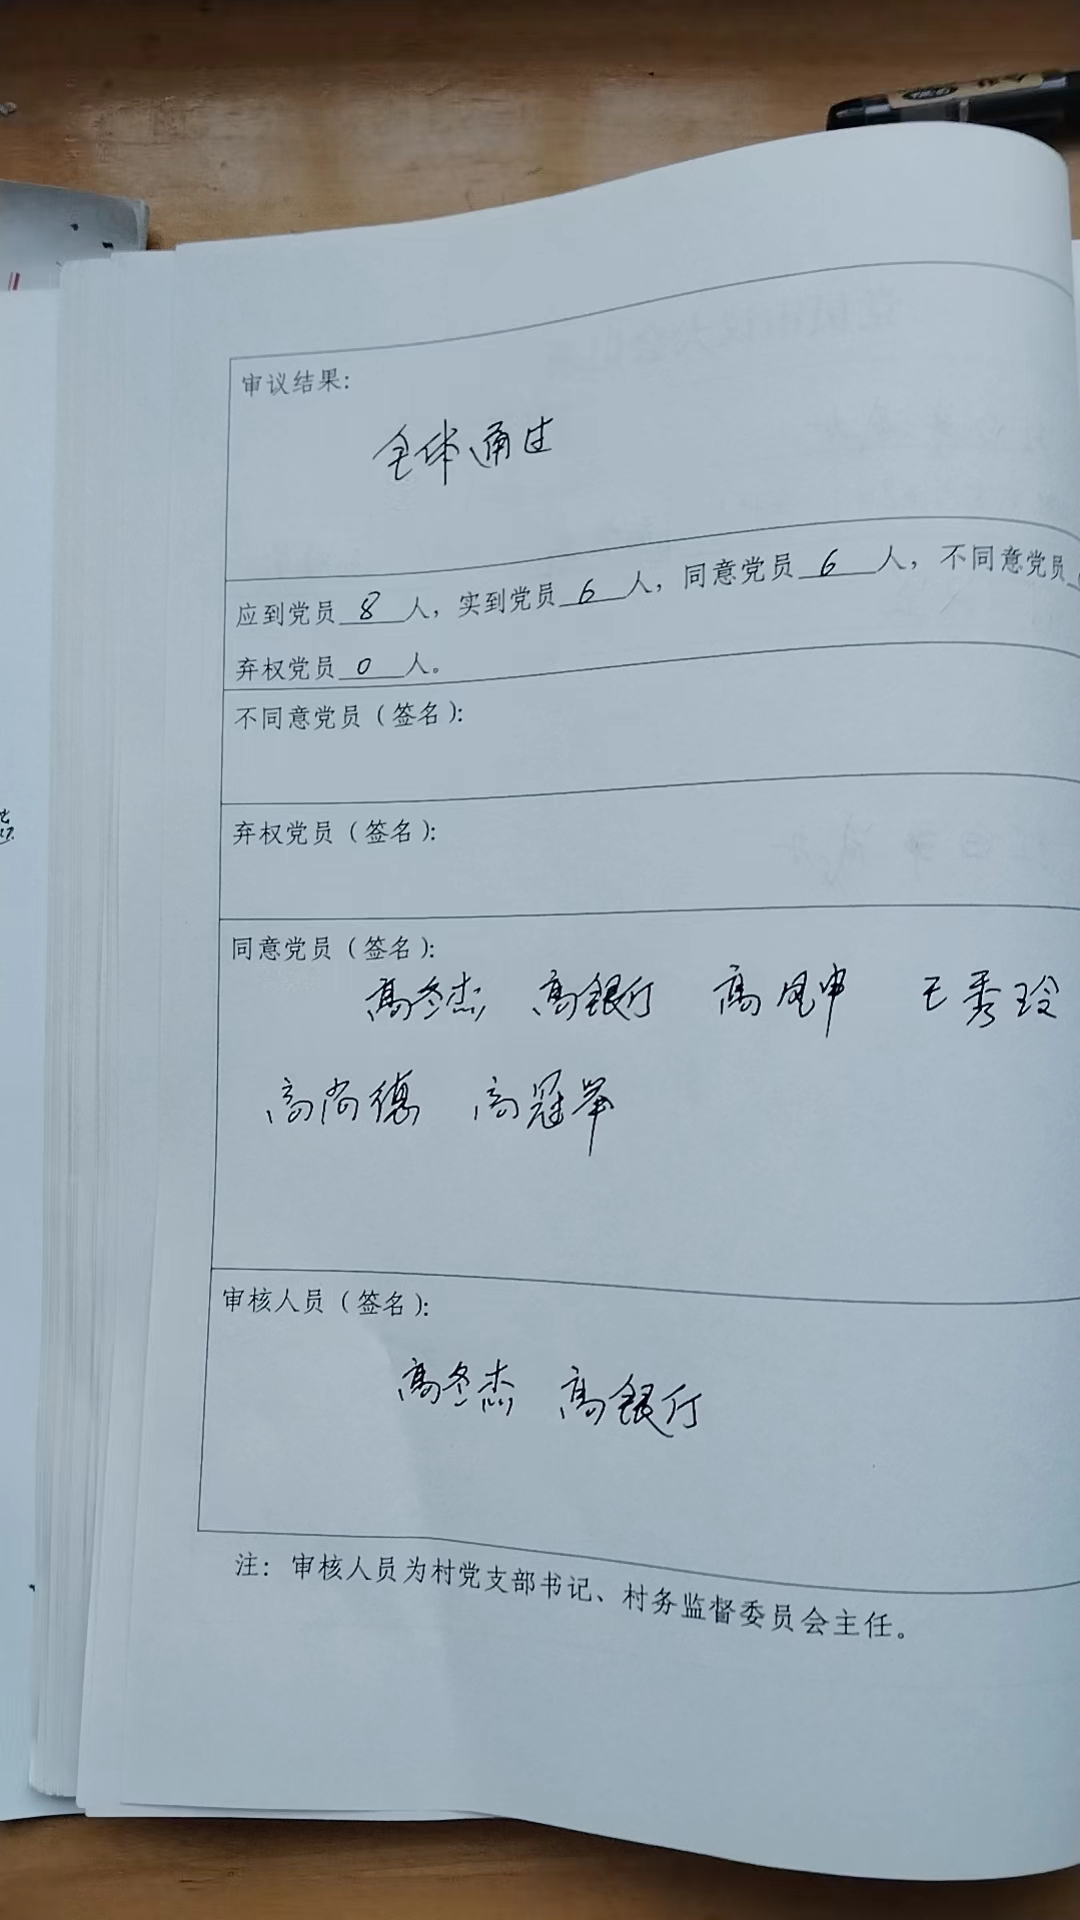 审议结果：
全体通过
应到党员 8 人，实到党员 6 人，同意党员 6 人，不同意党员
弃权党员 0 人。
不同意党员（签名）：
弃权党员（签名）：
同意党员（签名）：
高冬杰 高银行 高凤申 王秀玲
高尚德 高冠军
审核人员（签名）：
高冬杰 高银行
注：审核人员为村党支部书记、村务监督委员会主任。